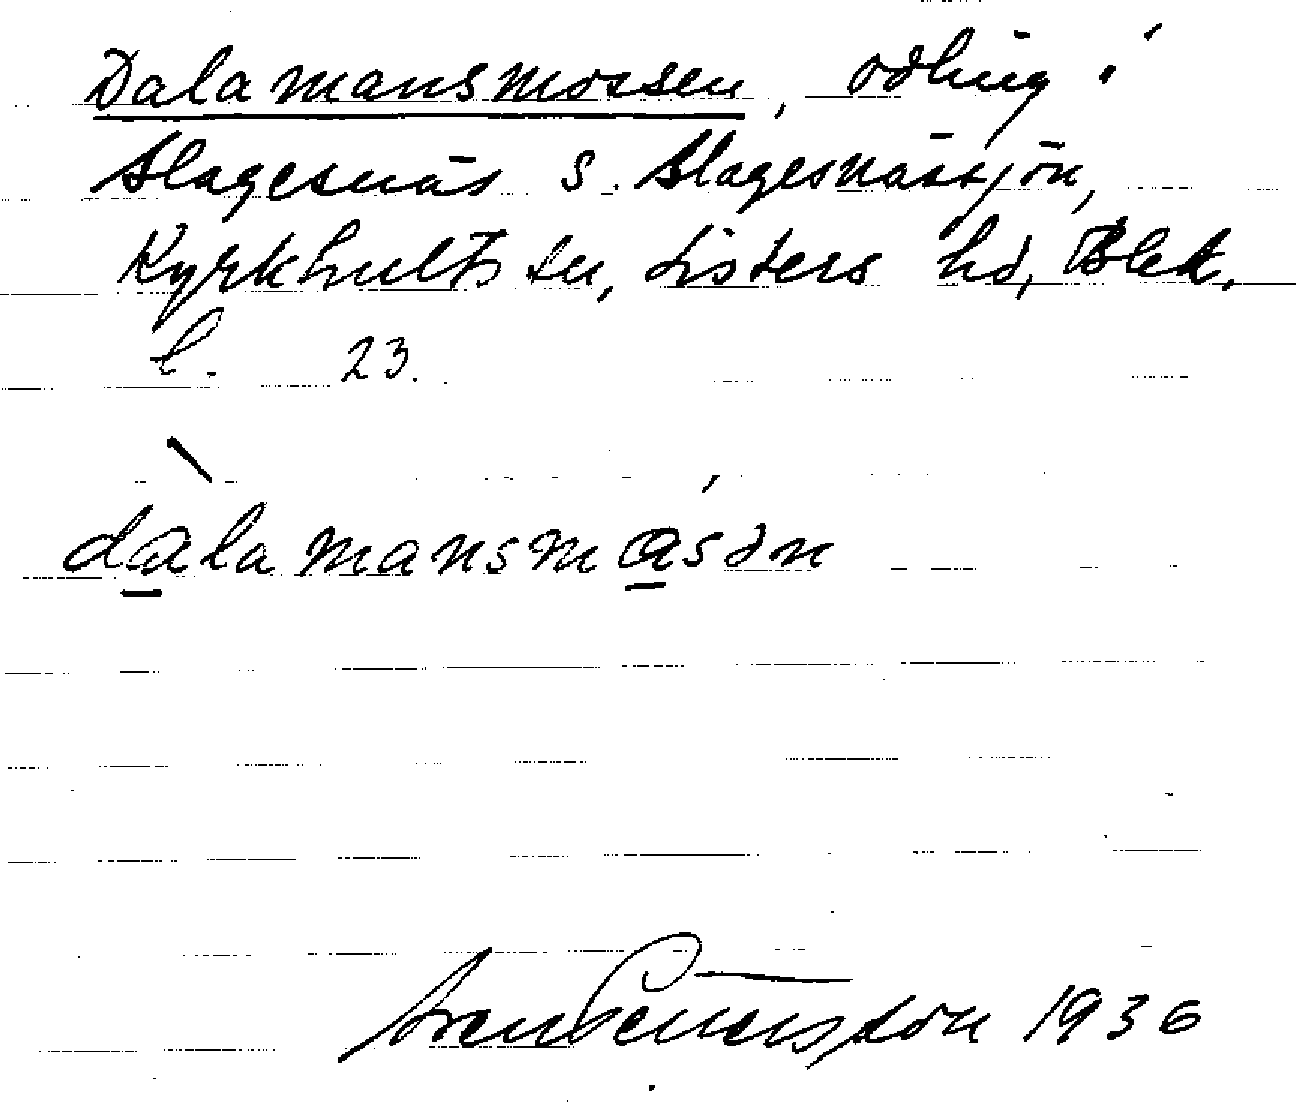 Dalamansmossen, odling i
Slagesnäs S. Slagesnässjön,
Kyrkhults sn, Listers hd, Blek.
l. 23.
dalamansmåsən
Sven Benson 1936